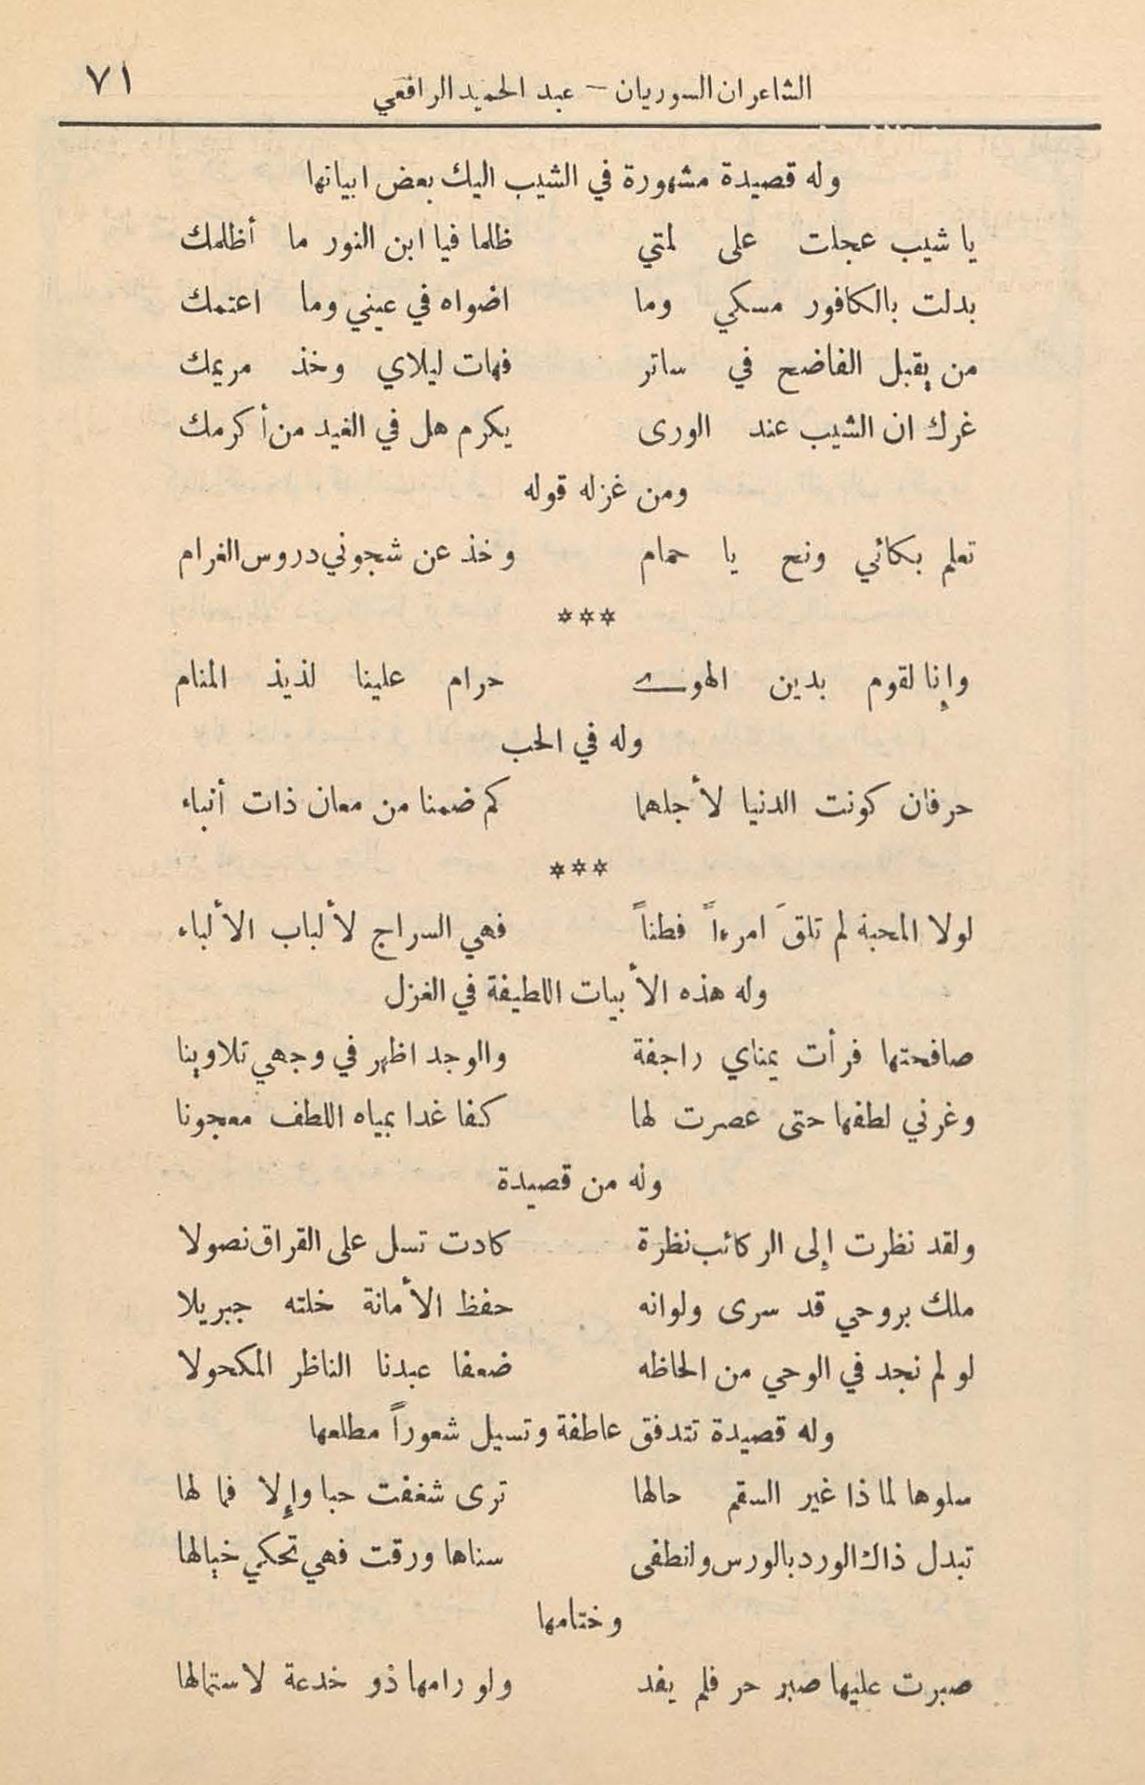 الشاعران السوريان – عبد الحميد الرافعي ٧١
وله قصيدة مشهورة في الشيب اليك بعض ابياتها
يا شيب عجلت على لمتي ظلما فيا ابن النور ما أظلمك
بدلت بالكافور مسكي وما اضواه في عيني وما اعتمك
من يقبل الفاضح في ساتر فهات ليلاي وخذ مريمك
غرك ان الشيب عند الورى يكرم هل في الغيد من أكرمك
ومن غزله قوله
تعلم بكائي ونح يا حمام وخذ عن شجوني دروس الغرام
***
وإنا لقوم بدين الهوى حرام علينا لذيذ المنام
وله في الحب
حرفان كونت الدنيا لأجلهما كم ضمنا من معان ذات أنباء
***
لولا المحبة لم تلقَ امرءاً فطناً فهي السراج لألباب الألباء
وله هذه الأبيات اللطيفة في الغزل
صافحتها فرأت يمناي راجفة والوجد اظهر في وجهي تلاوينا
وغرني لطفها حتى عصرت لها كفا غدا بمياه اللطف معجونا
وله من قصيدة
ولقد نظرت إلى الركائب نظرة كادت تسل على القراق نصولا
ملك بروحي قد سرى ولوانه حفظ الأمانة خلته جبريلا
لو لم نجد في الوحي من الحاظه ضعفا عبدنا الناظر المكحولا
وله قصيدة تتدفق عاطفة وتسيل شعوراً مطلعها
سلوها لماذا غير السقم حالها ترى شغفت حبا وإلا فما لها
تبدل ذاك الورد بالورس وانطفى سناها ورقت فهي تحكي خيالها
وختامها
صبرت عليها صبر حر فلم يفد ولو رامها ذو خدعة لاستمالها